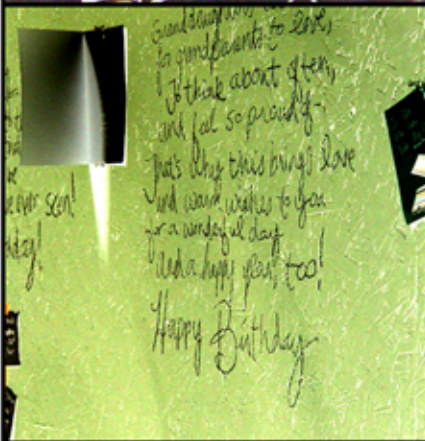 Granddaughters
for grandparents to love,
To think about often,
and feel so proud of-
That's why this brings love
and warm wishes to you
for a wonderful day
And a happy year, too!
Happy Birthday
ever seen!